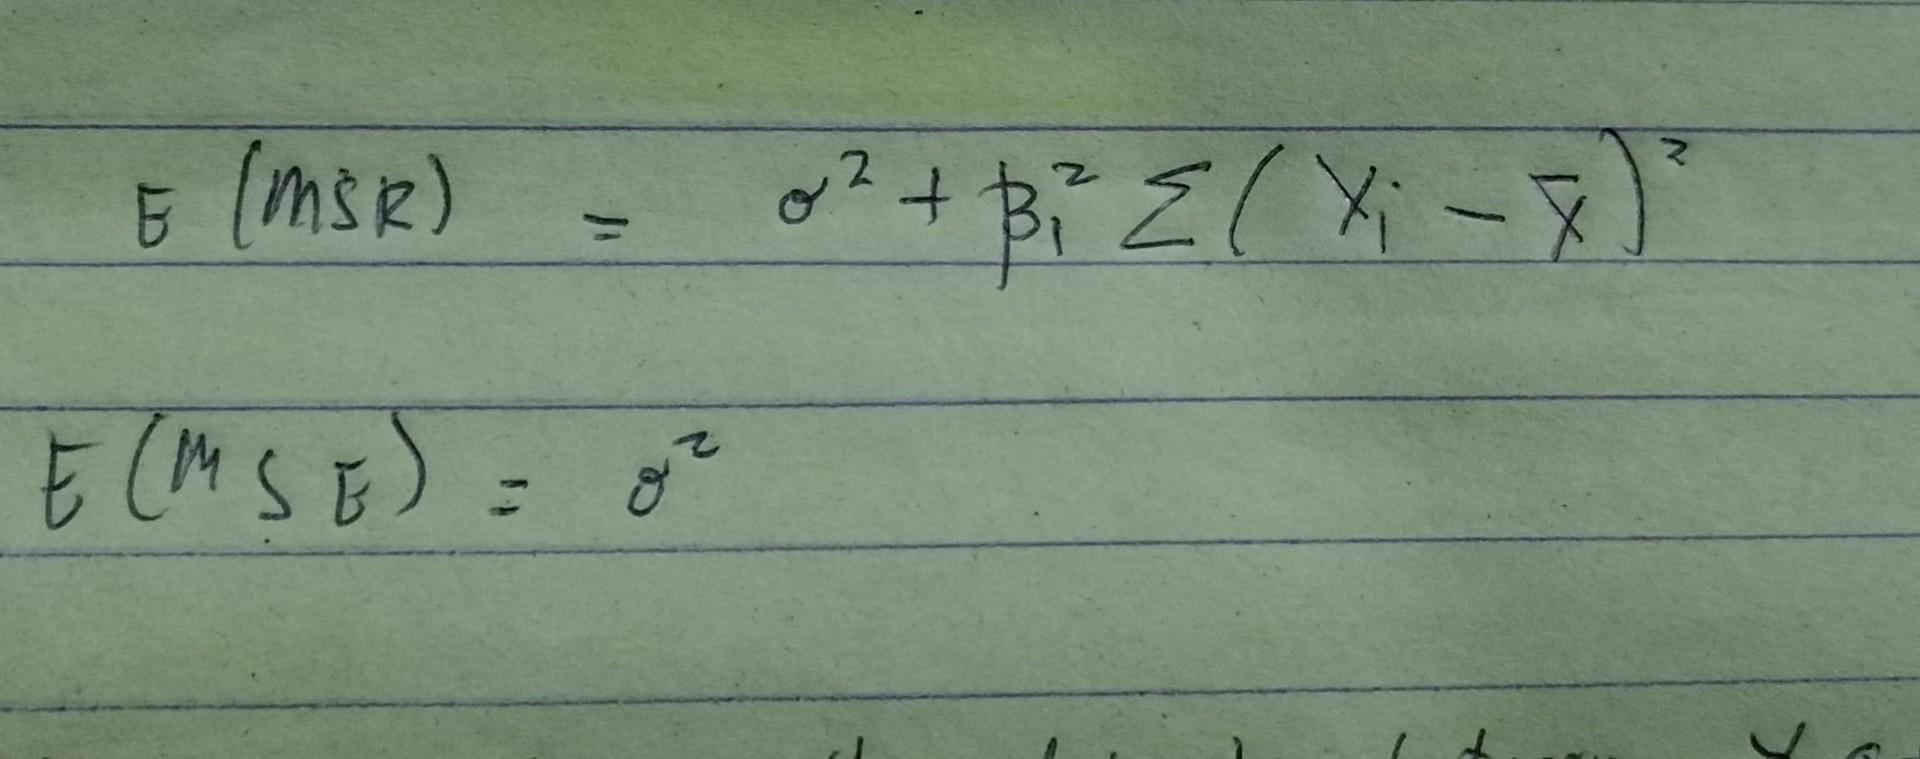 E (MSR) = σ² + β₁² Σ ( Xᵢ − X̄ )²
E(MSE) = σ²